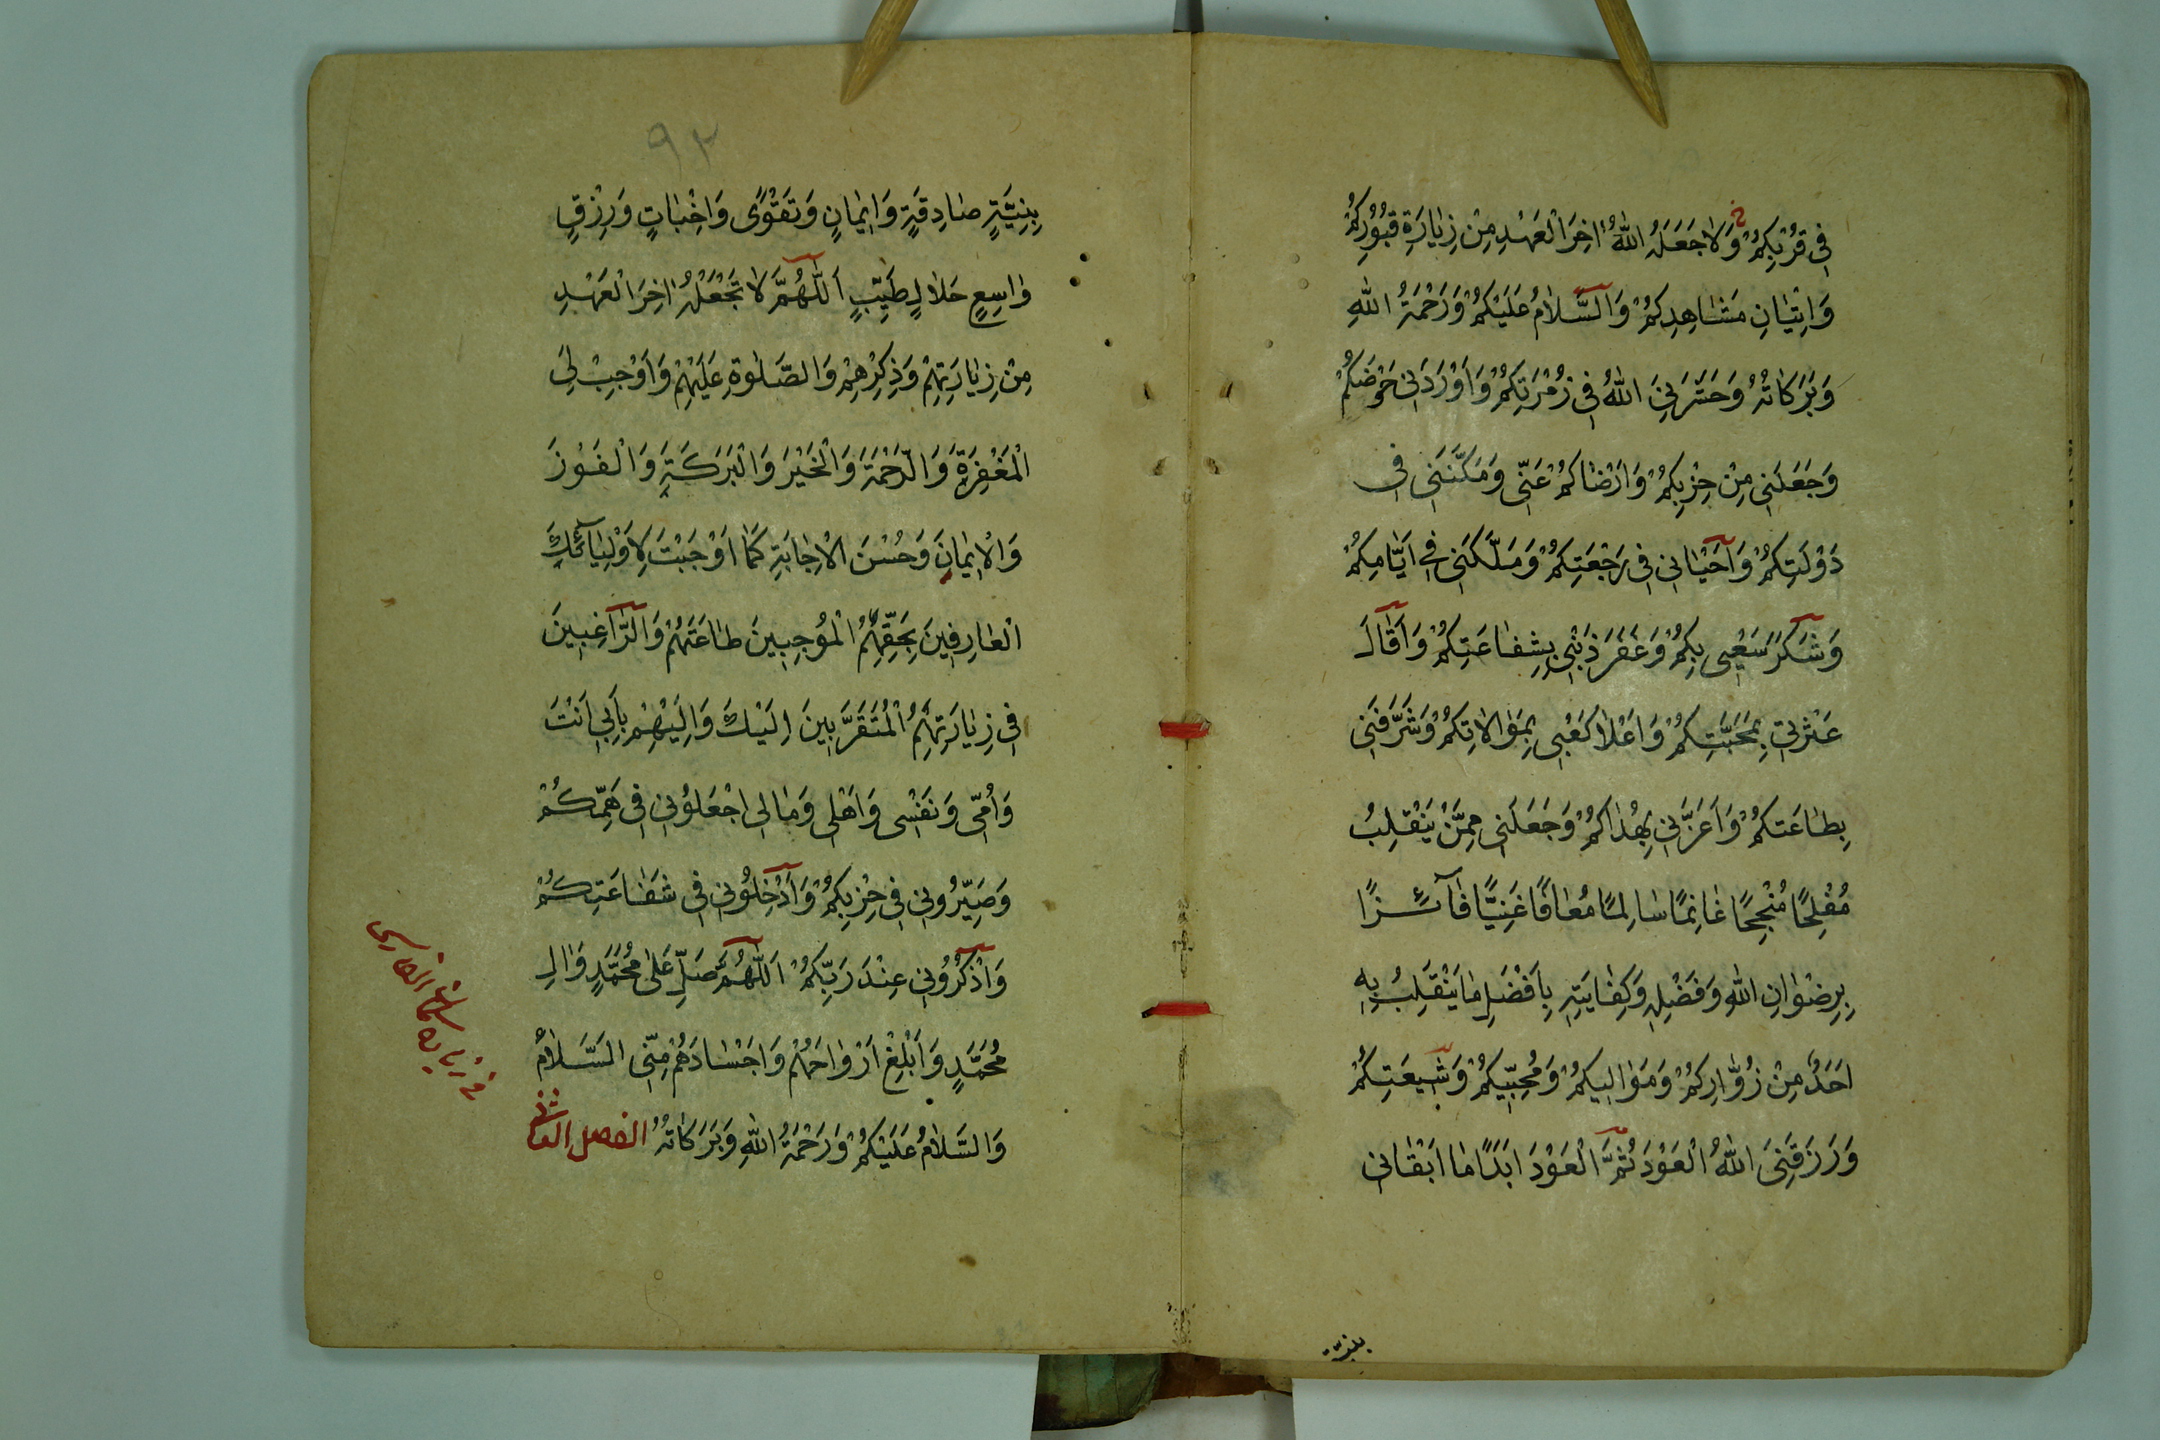 فِي قُرْبِكُمْ وَلٰا جَعَلَهُ اللّٰهُ اخِرَ الْعَهْدِ مِنْ زِيٰارَةِ قُبُورِكُمْ
وَاِتْيٰانِ مَشٰاهِدِكُمْ وَالسَّلٰامُ عَلَيْكُمْ وَرَحْمَةُ اللّٰهِ
وَبَرَكٰاتُهُ وَحَشَرَنِيَ اللّٰهُ فِي زُمْرَتِكُمْ وَاَوْرَدَنِي حَوْضَكُمْ
وَجَعَلَنِي مِنْ حِزْبِكُمْ وَاَرْضٰاكُمْ عَنّٖي وَمَكَّنَنِي فِي
دَوْلَتِكُمْ وَاَحْيٰانِي فِي رَجْعَتِكُمْ وَمَلَّكَنِي فِي اَيّٰامِكُمْ
وَشَكَرَ سَعْيِي بِكُمْ وَغَفَرَ ذَنْبِي بِشِفٰاعَتِكُمْ وَاَقٰالَ
عَثْرَتِي بِمَحَبَّتِكُمْ وَاَعْلٰا كَعْبِي بِمَوٰالٰاتِكُمْ وَشَرَّفَنِي
بِطٰاعَتِكُمْ وَاَعَزَّنِي بِهُدٰاكُمْ وَجَعَلَنِي مِمَّنْ يَنْقَلِبُ
مُفْلِحًا مُنْجِحًا غٰانِمًا سٰالِمًا مُعٰافًا غَنِيًّا فٰآئِزًا
بِرِضْوٰانِ اللّٰهِ وَفَضْلِهِ وَكِفٰايَتِهِ بِاَفْضَلِ مٰا يَنْقَلِبُ بِهِ
اَحَدٌ مِنْ زُوّٰارِكُمْ وَمَوٰالِيكُمْ وَمُحِبّٖيكُمْ وَشٖيعَتِكُمْ
وَرَزَقَنِيَ اللّٰهُ الْعَوْدَ ثُمَّ الْعَوْدَ اَبَدًا مٰا اَبْقٰانِي
بنية
٩٢
بِنِيَّةٍ صٰادِقَةٍ وَاِيمٰانٍ وَتَقْوًى وَاِخْبٰاتٍ وَرِزْقٍ
وٰاسِعٍ حَلٰالٍ طَيِّبٍ اَللّٰهُمَّ لٰا تَجْعَلْهُ اخِرَ الْعَهْدِ
مِنْ زِيٰارَتِهِمْ وَذِكْرِهِمْ وَالصَّلٰوةِ عَلَيْهِمْ وَاَوْجِبْ لِيَ
الْمَغْفِرَةَ وَالرَّحْمَةَ وَالْخَيْرَ وَالْبَرَكَةَ وَالْفَوْزَ
وَالْاِيمٰانَ وَحُسْنَ الْاِجٰابَةِ كَمٰا اَوْجَبْتَ لِاَوْلِيٰآئِكَ
الْعٰارِفِينَ بِحَقِّهِمُ الْمُوجِبِينَ طٰاعَتَهُمْ وَالرّٰاغِبِينَ
فِي زِيٰارَتِهِمُ الْمُتَقَرَّبِينَ اِلَيْكَ وَاِلَيْهِمْ بِاَبِي اَنْتَ
وَاُمّٖي وَنَفْسِي وَاَهْلِي وَمٰالِي اجْعَلُونِي فِي هَمِّكُمْ
وَصَيِّرُونِي فِي حِزْبِكُمْ وَاَدْخِلُونِي فِي شَفٰاعَتِكُمْ
وَاذْكُرُونِي عِنْدَ رَبِّكُمْ اَللّٰهُمَّ صَلِّ عَلىٰ مُحَمَّدٍ وَاٰلِ
مُحَمَّدٍ وَاَبْلِغْ اَرْوٰاحَهُمْ وَاَجْسٰادَهُمْ مِنّٖي السَّلٰامُ
وَالسَّلٰامُ عَلَيْكُمْ وَرَحْمَةُ اللّٰهِ وَبَرَكٰاتُهُ الفصل العاشر
في زيارة سلمان الفارسي